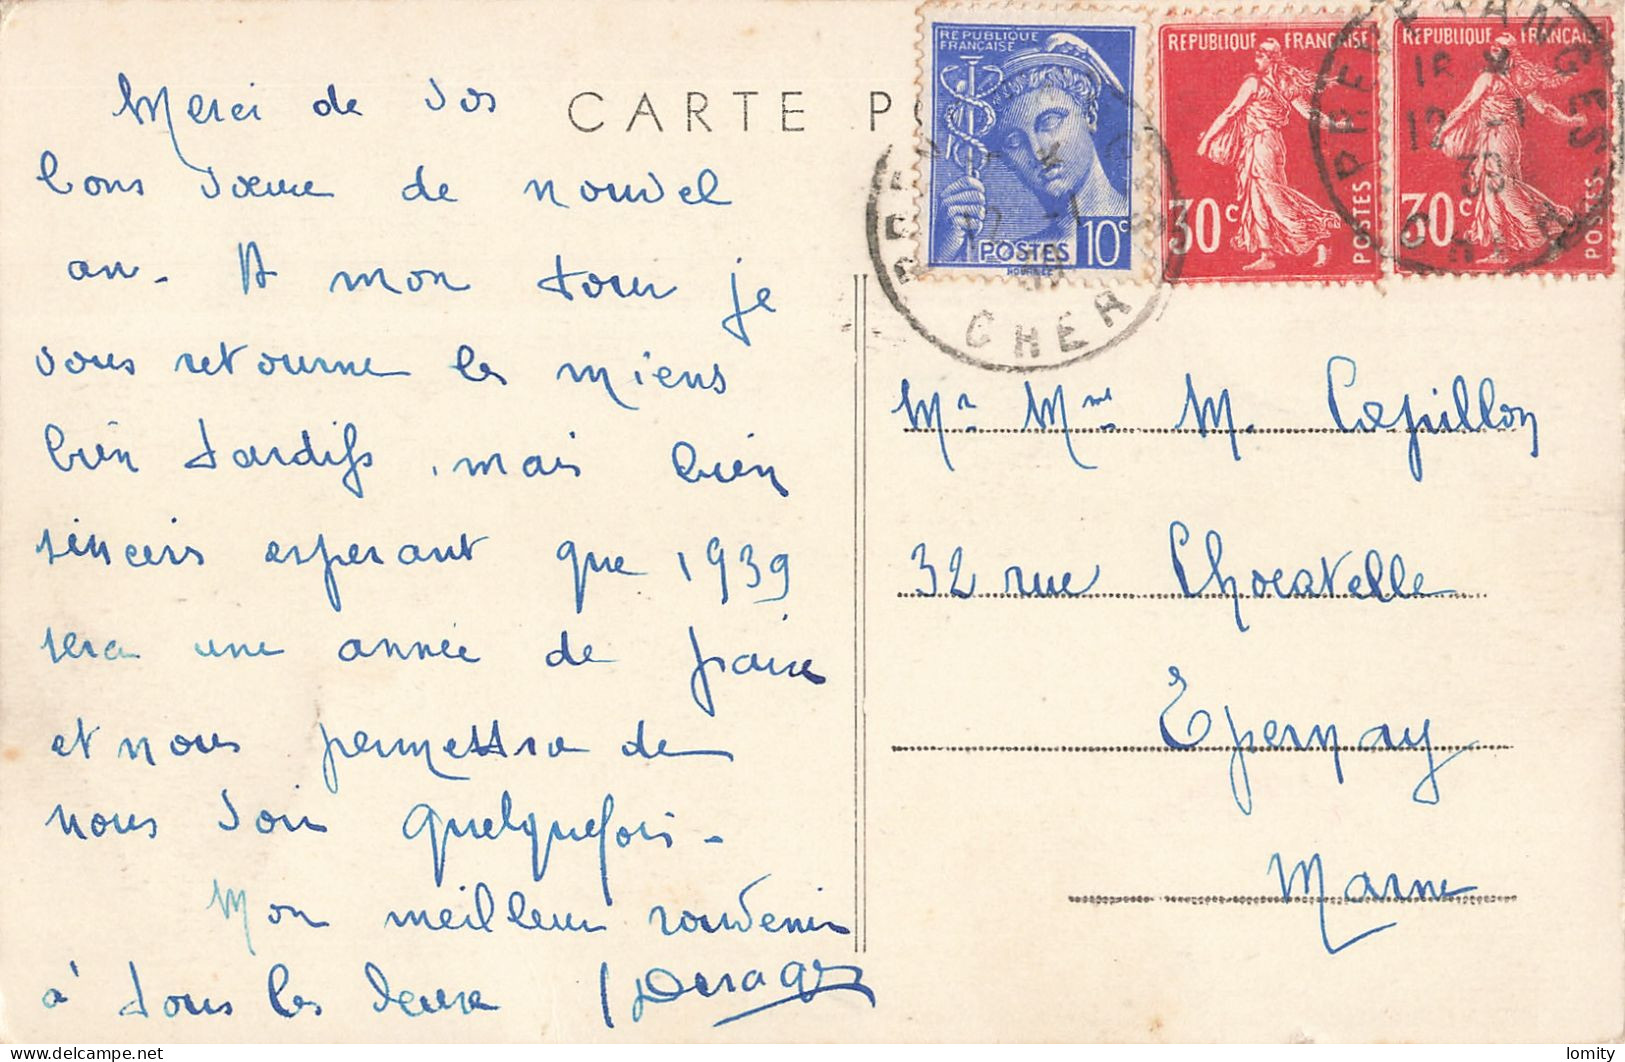 CARTE
REPUBLIQUE
FRANÇAISE
POSTES 10c
REPUBLIQUE FRANÇAISE
30c
POSTES
REPUBLIQUE FRANÇAISE
30c
POSTES
CHER
12 -1
39
Merci de vos
bons vœux de nouvel
an. A mon tour je
vous retourne les miens
bien tardifs, mais bien
sincers esperant que 1939
sera une année de paix
et nous permettra de
nous voir quelquefois.
Mon meilleur souvenir
à tous les deux
Mr Mme M. Capillon
32 rue Chocatelle
Epernay
Marne
lomity